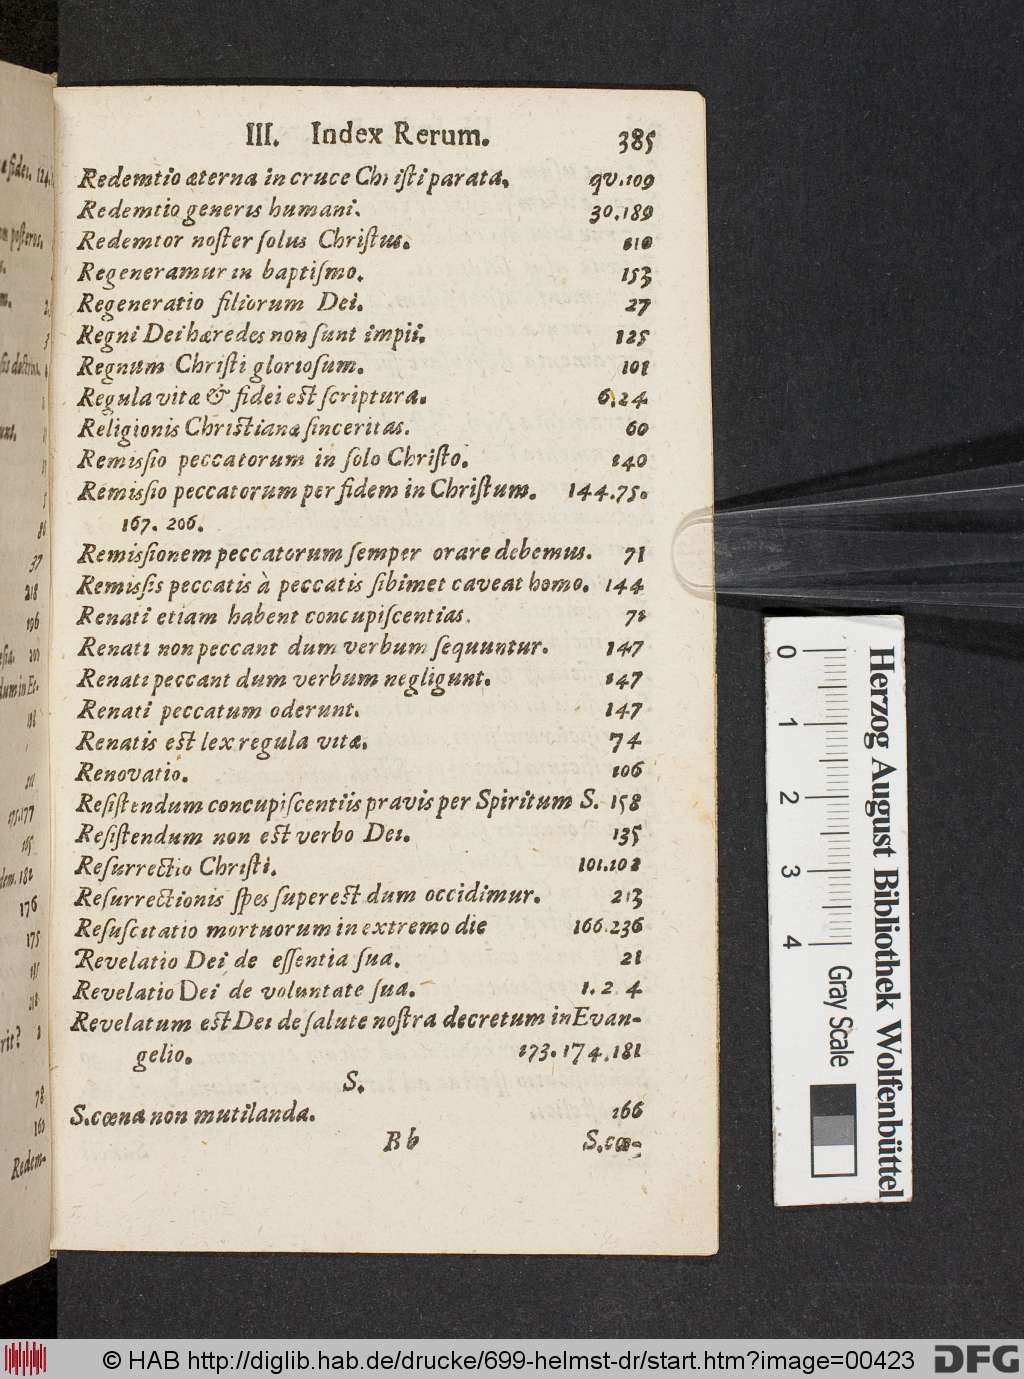 III. Index Rerum. 385
Redemtio æterna in cruce Chriſti parata. qv.109
Redemtio generis humani. 30.189
Redemtor noſter ſolus Chriſtus. 110
Regeneramur in baptiſmo. 153
Regeneratio filiorum Dei. 27
Regni Dei hæredes non ſunt impii. 125
Regnum Chriſti glorioſum. 101
Regula vitæ & fidei eſt ſcriptura. 6.24
Religionis Chriſtianæ ſinceritas. 60
Remiſſio peccatorum in ſolo Chriſto. 140
Remiſſio peccatorum per fidem in Chriſtum. 144.75.
167. 206.
Remiſſionem peccatorum ſemper orare debemus. 71
Remiſſis peccatis à peccatis ſibimet caveat homo. 144
Renati etiam habent concupiſcentias. 71
Renati non peccant dum verbum ſequuntur. 147
Renati peccant dum verbum negligunt. 147
Renati peccatum oderunt. 147
Renatis eſt lex regula vitæ. 74
Renovatio. 106
Reſiſtendum concupiſcentiis pravis per Spiritum S. 158
Reſiſtendum non eſt verbo Dei. 135
Reſurrectio Chriſti. 101.102
Reſurrectionis ſpes ſupereſt dum occidimur. 213
Reſuſcitatio mortuorum in extremo die 166.236
Revelatio Dei de eſſentia ſua. 21
Revelatio Dei de voluntate ſua. 1. 2 4
Revelatum eſt Dei de ſalute noſtra decretum in Evan-
gelio. 173.174.181
S.
S. cœna non mutilanda. 166
B b S. cœ-
37
218
196
176
175
78
Redem-
0 1 2 3 4
Gray Scale
Herzog August Bibliothek Wolfenbüttel
© HAB http://diglib.hab.de/drucke/699-helmst-dr/start.htm?image=00423
DFG